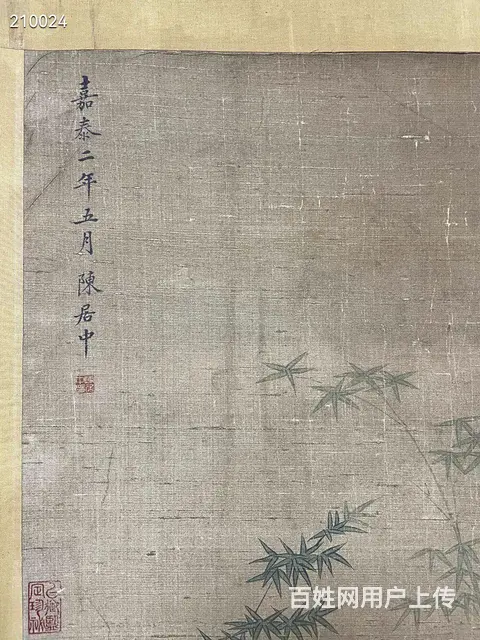 210024
嘉泰二年五月陳居中
百姓网用户上传